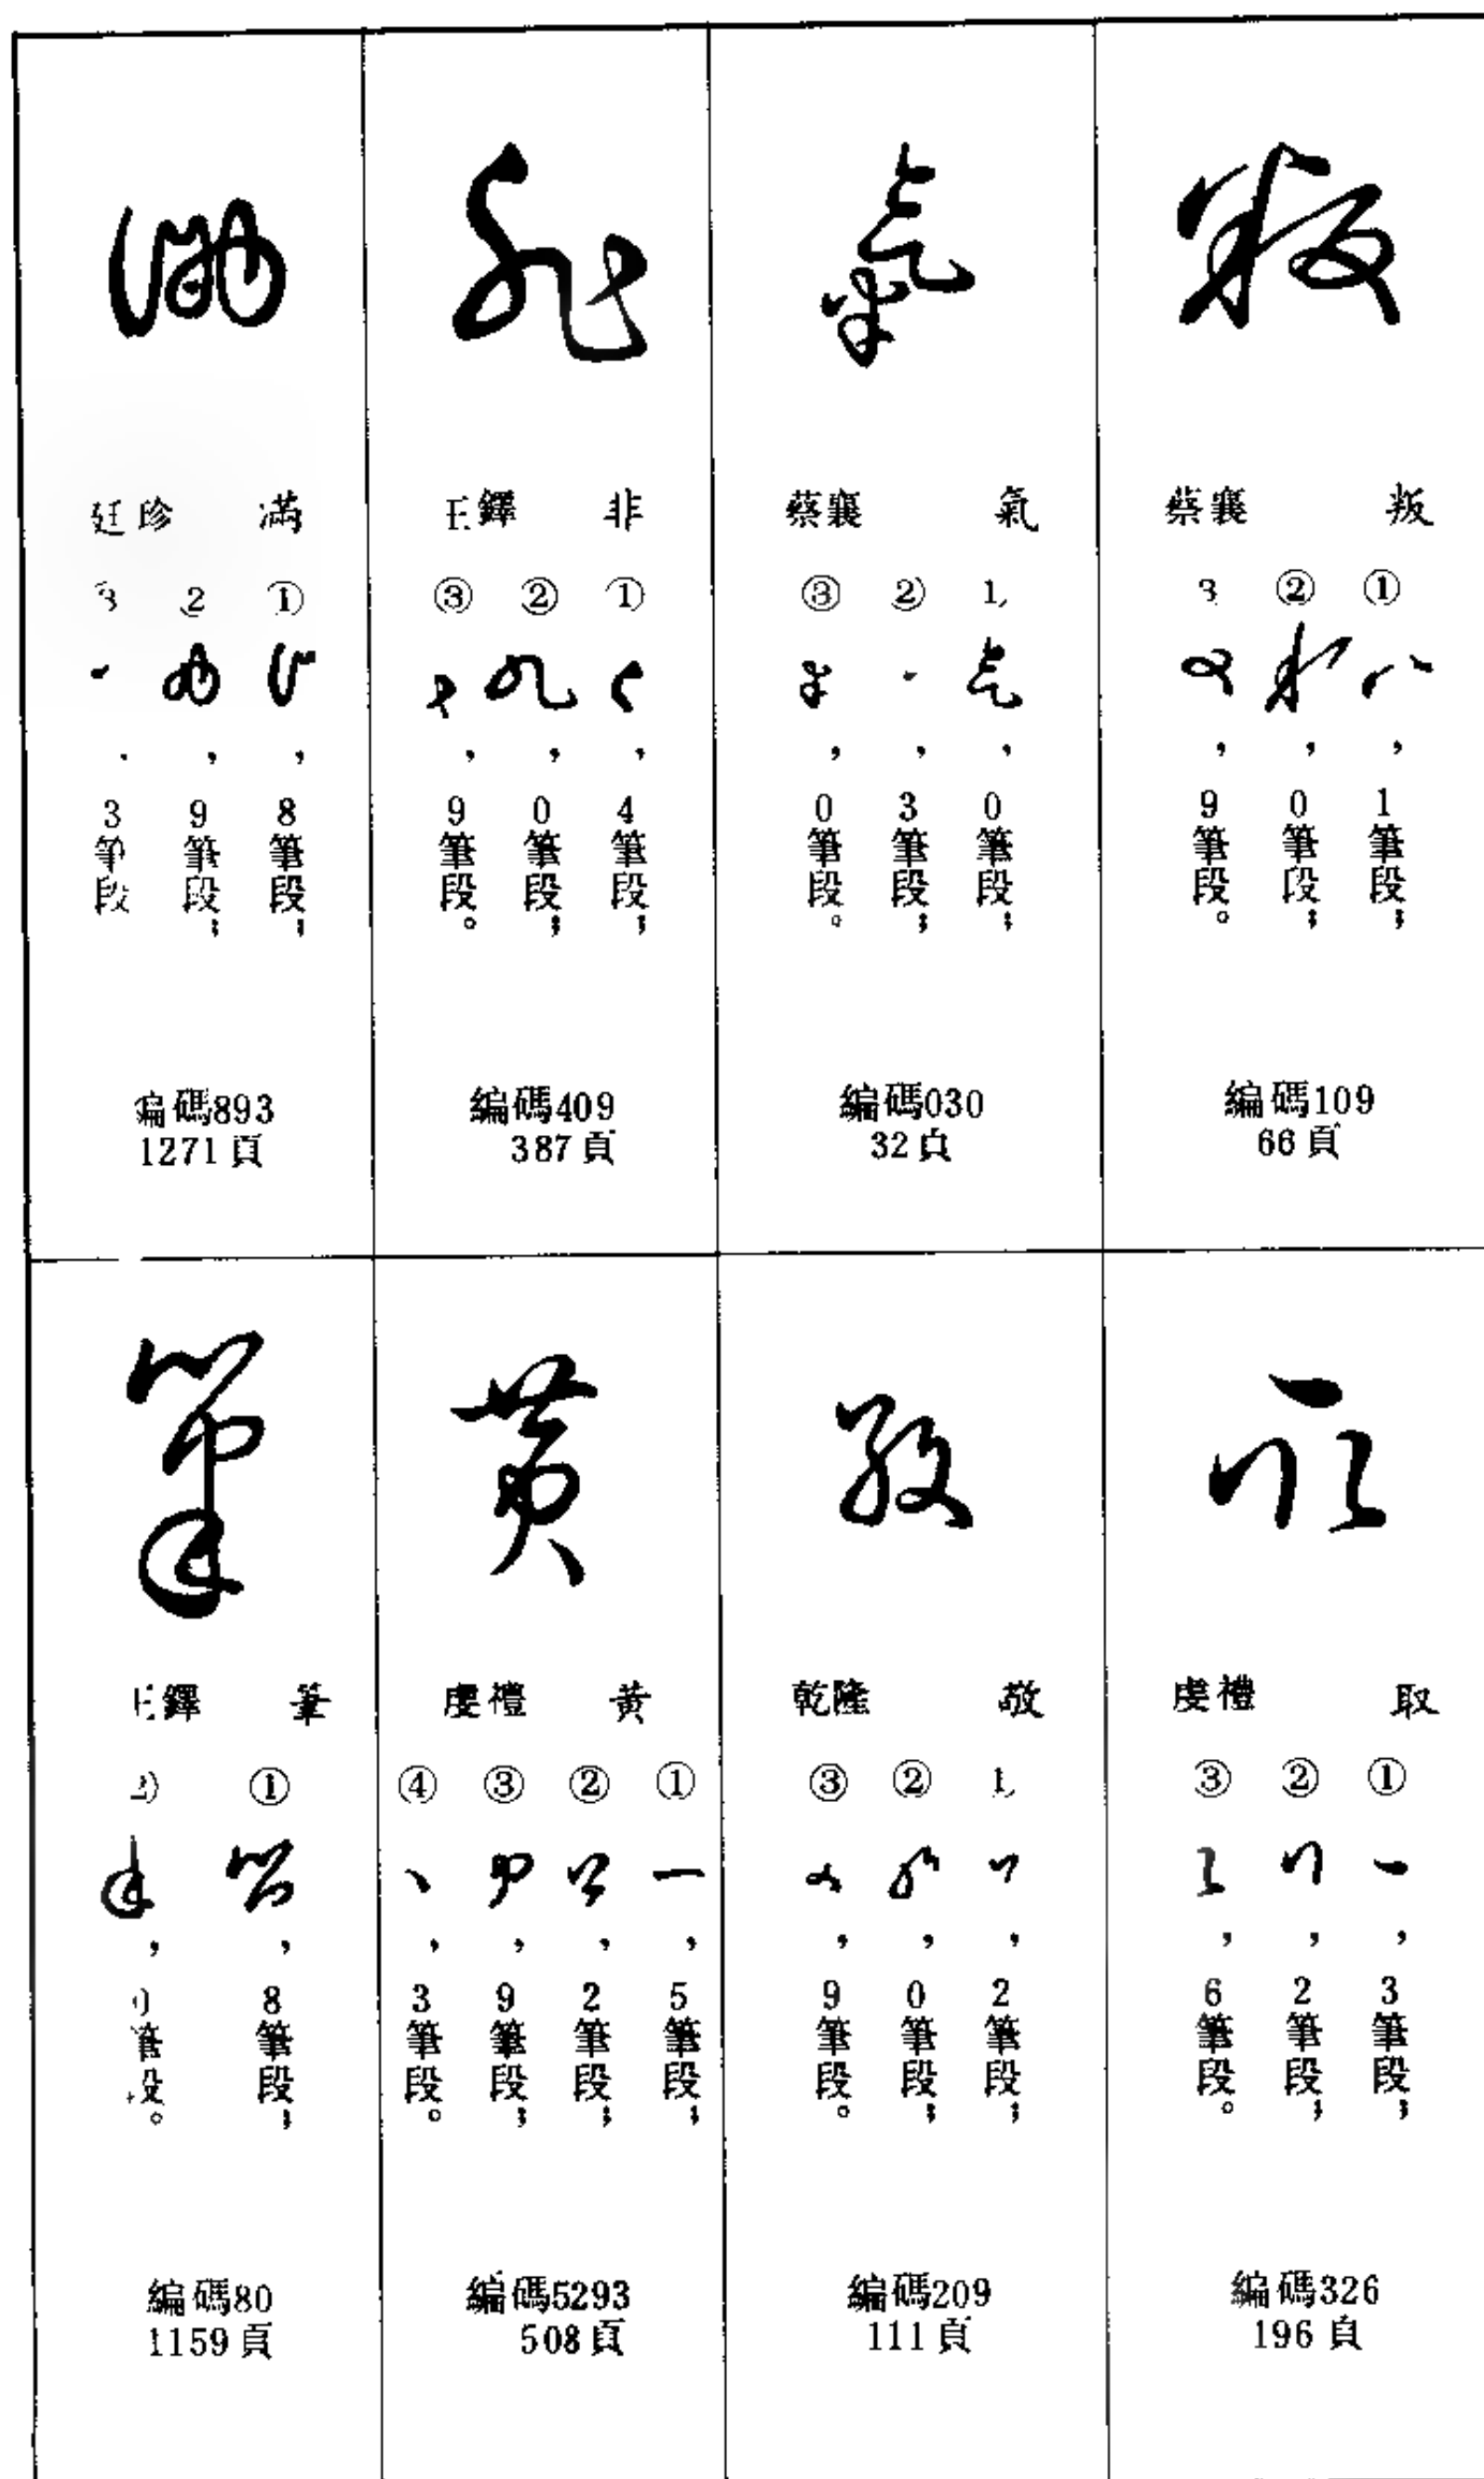 叛 蔡襄
①,1筆段;
②,0筆段;
3,9筆段。
編碼109
66頁
氣 蔡襄
1,0筆段;
②,3筆段;
③,0筆段。
編碼030
32頁
非 王鐸
①,4筆段;
②,0筆段;
③,9筆段。
編碼409
387頁
滿 廷珍
①,8筆段;
2,9筆段;
3,3筆段
編碼893
1271頁
取 虔禮
①,3筆段;
②,2筆段;
③,6筆段。
編碼326
196頁
敬 乾隆
1,2筆段;
②,0筆段;
③,9筆段。
編碼209
111頁
黃 虔禮
①,5筆段;
②,2筆段;
③,9筆段;
④,3筆段。
編碼5293
508頁
筆 王鐸
①,8筆段;
②,0筆段。
編碼80
1159頁